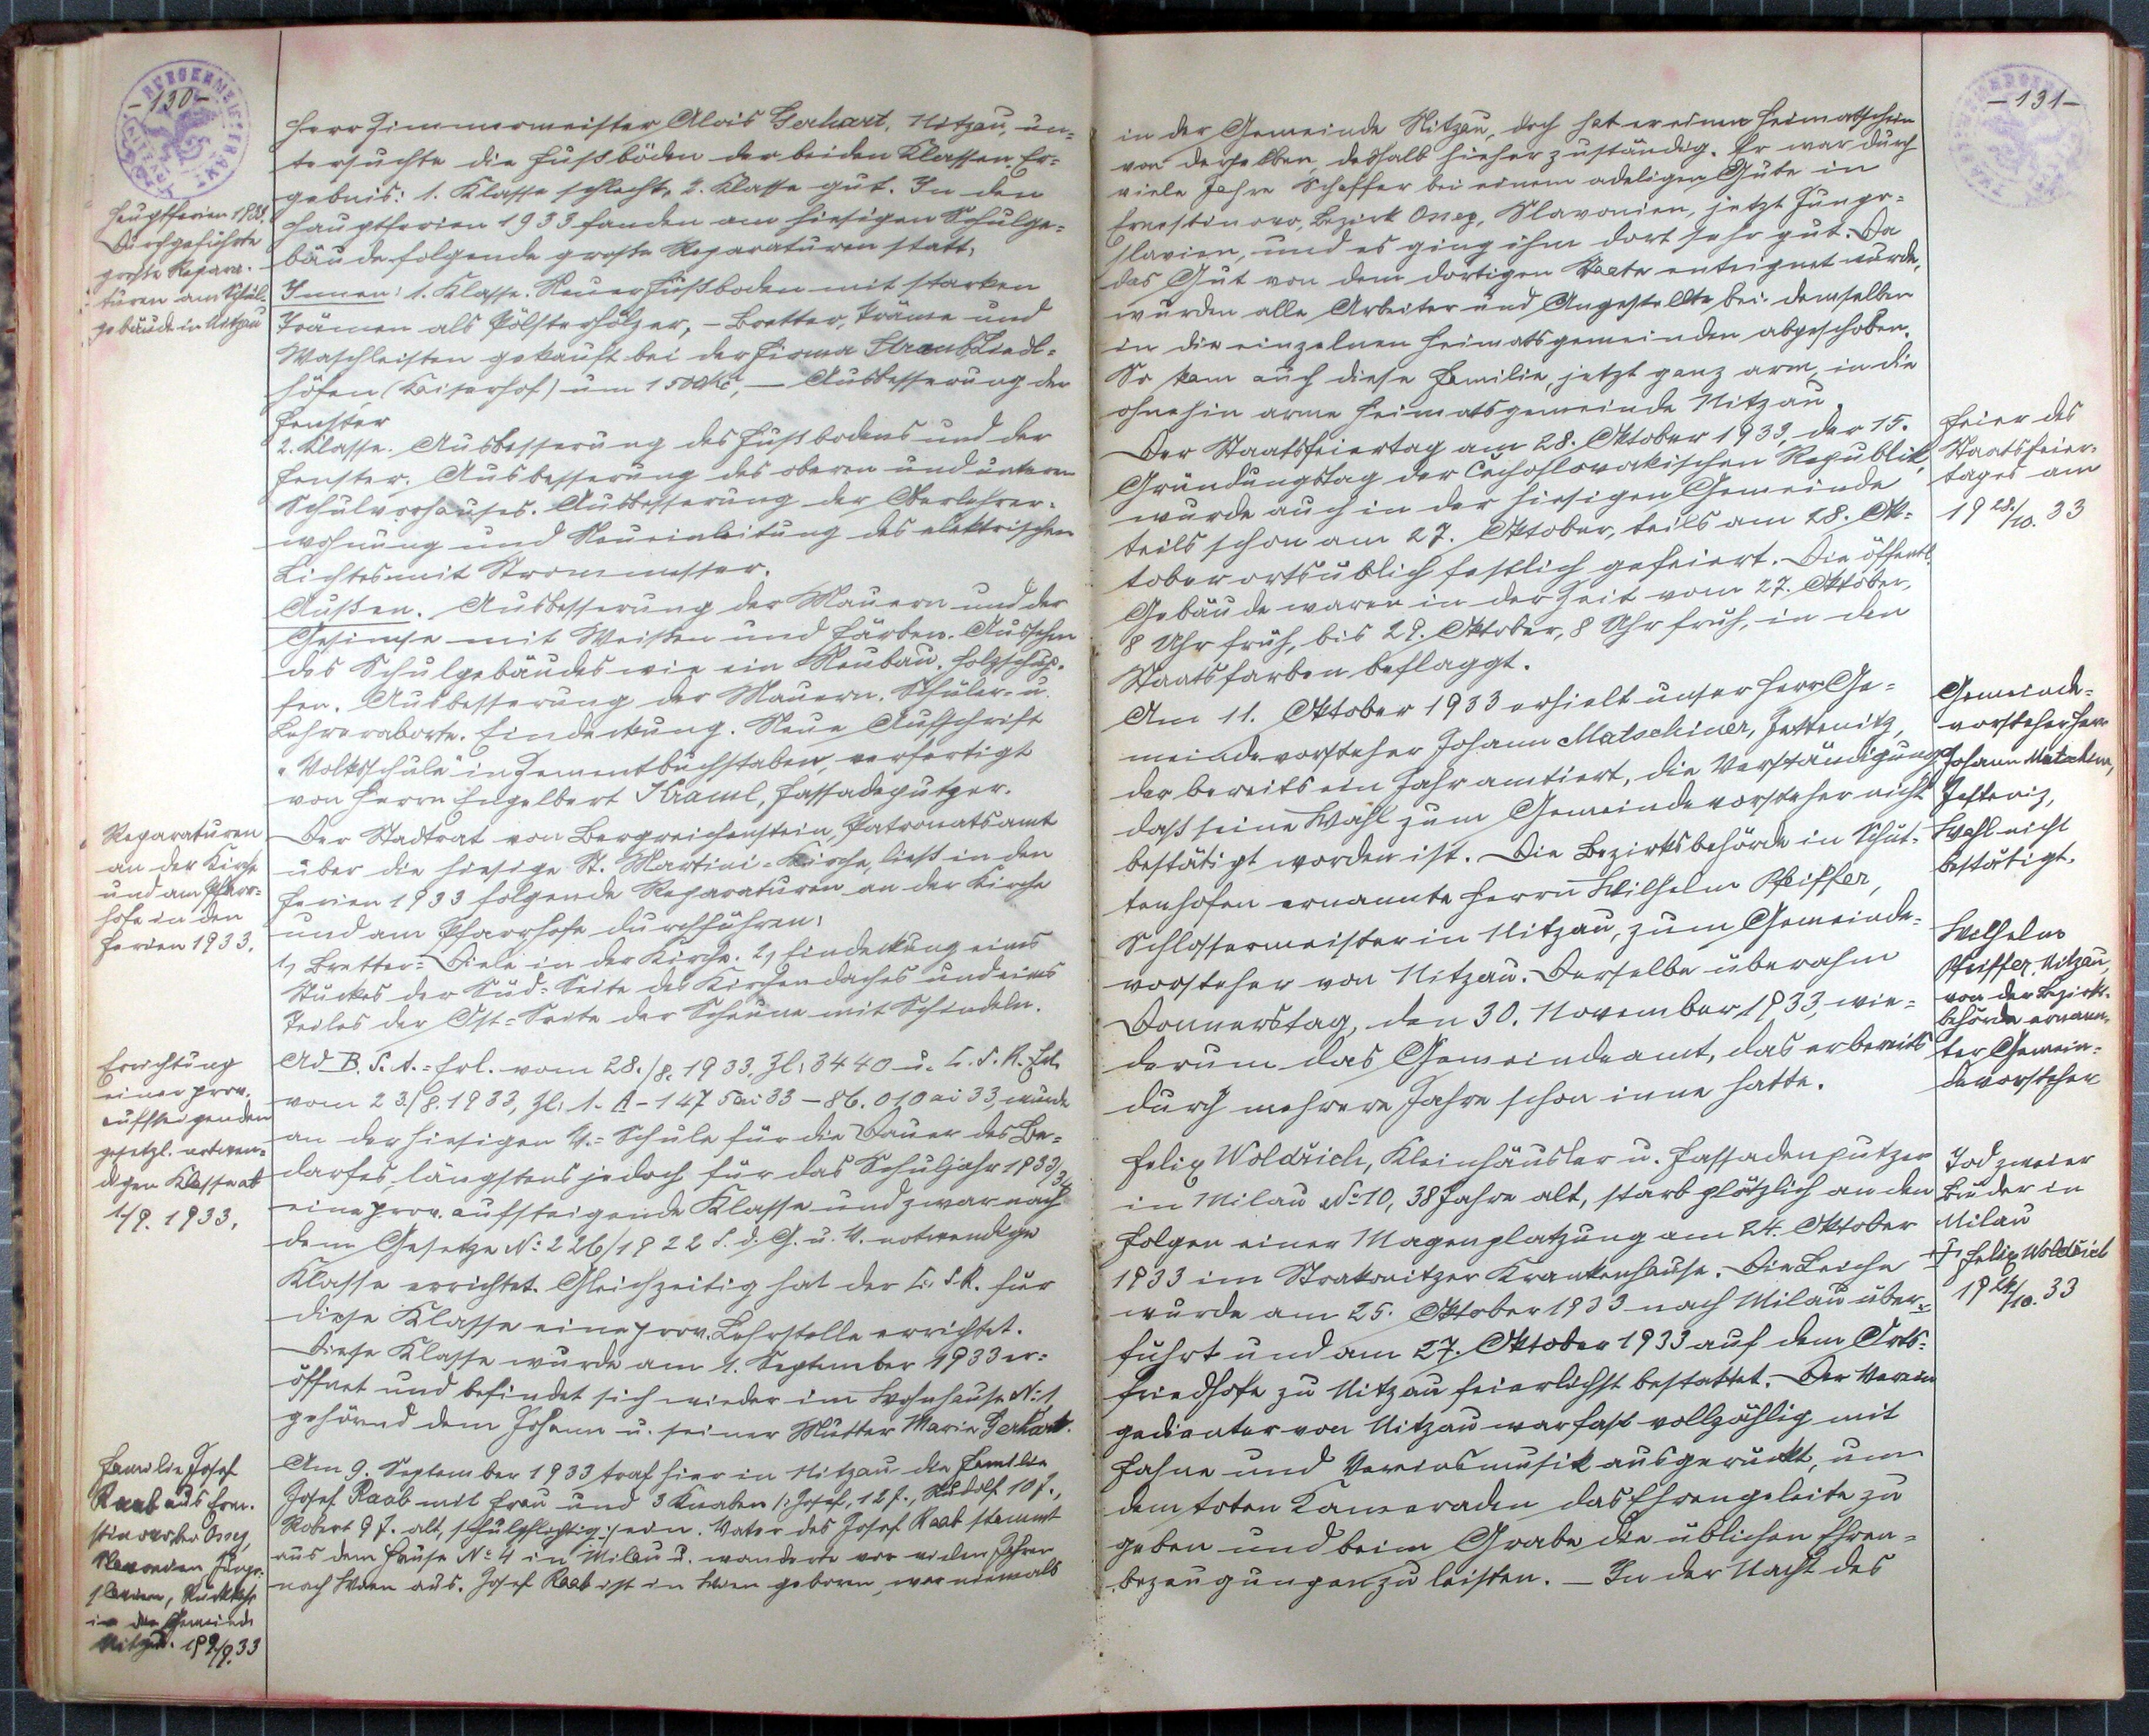 -130-
Herr Zimmermeister Alois Gerhart, Nitzau, un=
tersuchte die Fußböden der beiden Klassen. Er=
gebnis: 1. Klasse schlecht, 2. Klasse gut. In den
Hauptferien 1933 fanden am hiesigen Schulge=
bäude folgende große Reparaturen statt:
Innen: 1. Klasse. Neuer Fußboden mit starken
Trämen als Pölsterhölzer, – Bretter, Träme und
Waschleisten gekauft bei der Firma Straub Liedl=
höfen (Kaiserhof) um 1500 Kč, – Ausbesserung der
Fenster
2. Klasse. Ausbesserung des Fußbodens und der
Fenster. Ausbesserung des oberen und unteren
Schulvorhauses. Ausbesserung der Oberlehrer=
wohnung und Neueinleitung des elektrischen
Lichtes mit Strommesser.
Außen. Ausbesserung der Mauern und der
Gesimse mit Weißen und Färben. Aussehen
des Schulgebäudes wie ein Neubau. Holzschup=
fen. Ausbesserung der Mauern. Schüler- u.
Lehreraborte. Eindeckung. Neue Aufschrift
"Volksschule" in Zementbuchstaben, verfertigt
von Herrn Engelbert Kraml, Fassadeputzer.
Der Stadtrat von Bergreichenstein, Patronatsamt
über die hiesige St. Martini=Kirche, ließ in den
Ferien 1933 folgende Reparaturen an der Kirche
und am Pfarrhofe durchführen:
1, Bretter=Diele in der Kirche. 2, Eindeckung eines
Stückes der Süd=Seite des Kirchendaches und eines
Teiles der Ost=Seite der Scheune mit Schindeln.
Ad B. S. A.=Erl. vom 28./8. 1933, Zl: 3440 u. L. S. R. Erl.
vom 23./8. 1933, Zl: 1. A-1475 ai 33 – 86.010 ai 33, wurde
an der hiesigen V.=Schule für die Dauer des Be=
darfes, längstens jedoch für das Schuljahr 1933/34
eine prov. aufsteigende Klasse und zwar nach
dem Gesetze No: 226/1922 S. d. G. u. V. notwendige
Klasse errichtet. Gleichzeitig hat der L. S. R. für
diese Klasse eine prov. Lehrstelle errichtet.
Diese Klasse wurde am 1. September 1933 er=
öffnet und befindet sich wieder im Wohnhause No: 1
gehörend dem Johann u. seiner Mutter Maria Gerhart.
Am 9. September 1933 traf hier in Nitzau die Familie
Josef Raab mit Frau und 3 Knaben /: Josef, 12 J., Rudolf 10 J.,
Robert 9 J. alt, schulpflichtig :/ ein. Vater des Josef Raab stammt
aus dem Hause No 4 in Milau u. wanderte vor vielen Jahren
nach Wien aus. Josef Raab ist in Wien geboren, war niemals
Hauptferien 1933.
Durchgeführte
große Repara=
turen am Schul=
gebäude in Nitzau
Reparaturen
an der Kirche
und am Pfarr=
hofe in den
Ferien 1933.
Errichtung
einer prov.
aufsteigenden
gesetzl. notwen=
digen Klasse ab
1/9. 1933.
Familie Josef
Raab aus Erne=
stinovo bei Oseg,
Slavonien, Jugo=
slavien, Rückkehr
in die Gemeinde
Nitzau. 19 9/9. 33
-131-
in der Gemeinde Nitzau, doch hat er einen Heimatschein
von derselben, deshalb hieher zuständig. Er war durch
viele Jahre Schaffer bei einem adeligen Gute in
Ernestinovo, Bezirk Oseg, Slavonien, jetzt Jugo=
slavien, und es ging ihm dort sehr gut. Da
das Gut von dem dortigen Staate enteignet wurde,
wurden alle Arbeiter und Angestellte bei demselben
in die einzelnen Heimatsgemeinden abgeschoben.
So kam auch diese Familie, jetzt ganz arm, in die
ohnehin arme Heimatsgemeinde Nitzau.
Der Staatsfeiertag am 28. Oktober 1933, der 15.
Gründungstag der Čechoslovakischen Republik,
wurde auch in der hiesigen Gemeinde
teils schon am 27. Oktober, teils am 28. Ok=
tober ortsüblich festlich gefeiert. Die öffentl.
Gebäude waren in der Zeit vom 27. Oktober,
8 Uhr früh, bis 29. Oktober, 8 Uhr früh, in den
Staatsfarben beflaggt.
Am 11. Oktober 1933 erhielt unser Herr Ge=
meindevorsteher Johann Matschiner, Jettenitz,
der bereits ein Jahr amtiert, die Verständigung,
daß seine Wahl zum Gemeindevorsteher nicht
bestätigt worden ist. Die Bezirksbehörde in Schüt=
tenhofen ernannte Herrn Wilhelm Pfeiffer,
Schlossermeister in Nitzau, zum Gemeinde=
vorsteher von Nitzau. Derselbe überahm
Donnerstag, den 30. November 1933, wie=
derum das Gemeindeamt, das er bereits
durch mehrere Jahre schon inne hatte.
Felix Woldřich, Kleinhäusler u. Fassadenputzer
in Milau No 10, 38 Jahre alt, starb plötzlich an den
Folgen einer Magenplatzung am 24. Oktober
1933 im Strakonitzer Krankenhause. Die Leiche
wurde am 25. Oktober 1933 nach Milau über=
führt und am 27. Oktober 1933 auf dem Orts=
friedhofe zu Nitzau feierlichst bestattet. Der Verein
gedienter von Nitzau war fast vollzählig mit
Fahne und Vereinsmusik ausgerückt, um
dem toten Kameraden das Ehrengeleite zu
geben und beim Grabe die üblichen Ehren=
bezeugungen zu leisten. – In der Nacht des
Feier des
Staatsfeier=
tages am
19 28./10. 33
Gemeinde=
vorsteher Herr
Johann Matschiner,
Jetteniz,
Wahl nicht
bestätigt.
Wilhelm
Pfeiffer, Nitzau,
von der Bezirks=
behörde ernann=
ter Gemein=
devorsteher
Tod zweier
Brüder in
Milau
† Felix Woldřich
19 24/10. 33